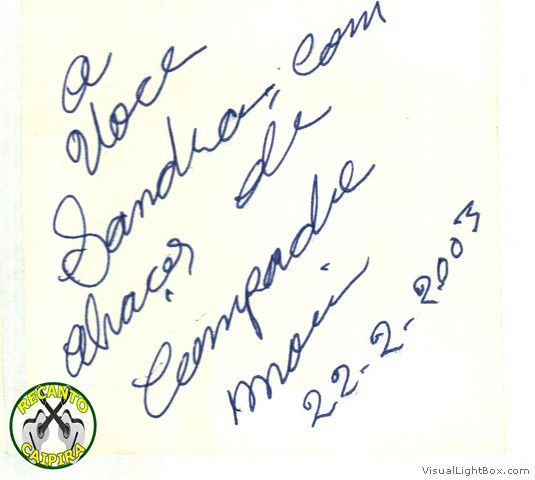 a
Voce
Sandra, com
abraços de
Compadre
Moui
22-2-2003
RECANTO
CAIPIRA
VisualLightBox.com